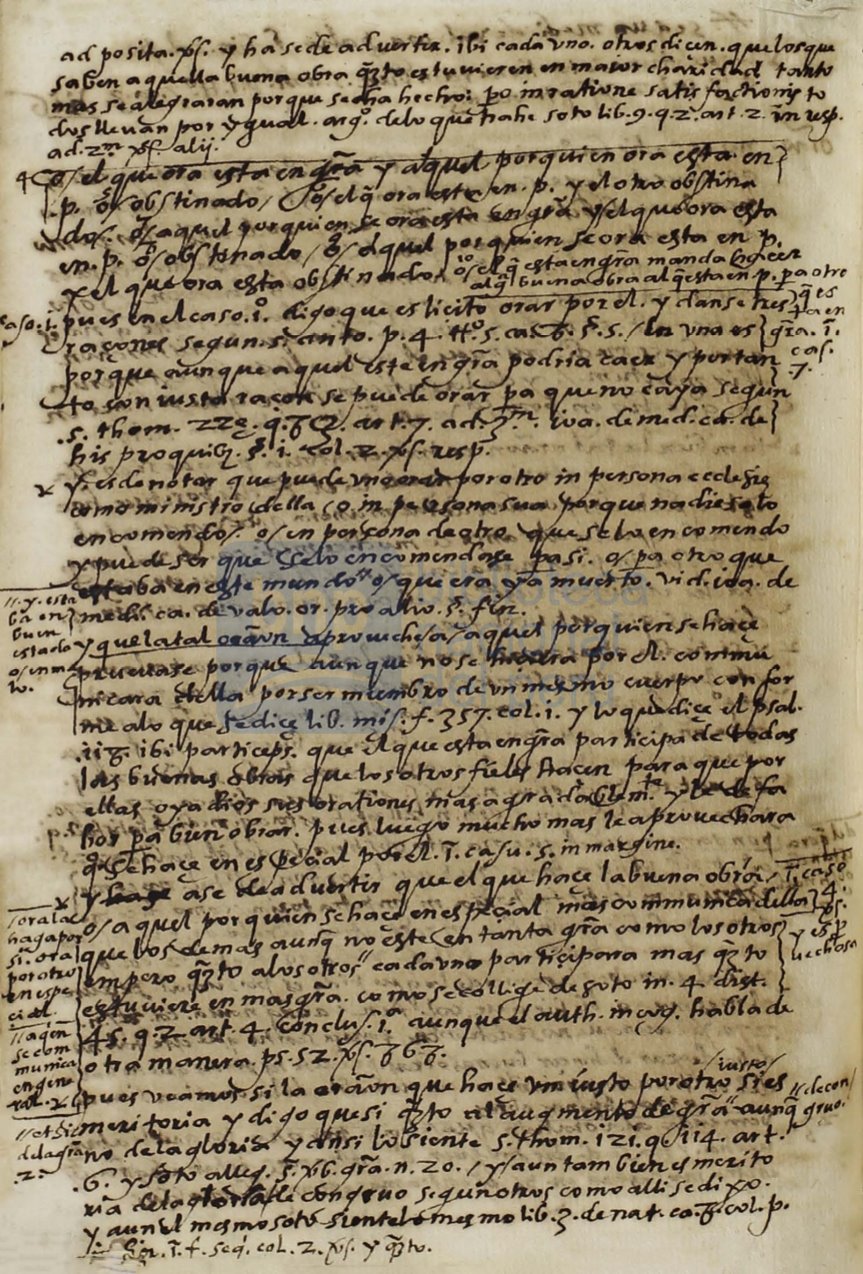 ad posita. xſ. y ha se de advertir. ibi cada vno. otros dicen. que los que
saben aquella buena obra q̃to estuvieren en maior charidad tanto
mas se alegraran porque se aha hecho: po in ratione satisfactionis to
dos llevan por ygual. argº. de lo que trahe soto lib. 9. q. 2. art. 2. in resp.
ad. 2m xſ. alij.
4 o/ el que ora esta en grã y aquel por quien ora esta en
.p. o/ obstinado / o/ el q̃ ora este en .p. y el otro obstina
do/. o/ aquel por quien se ora esta en grã y el que ora esta
en .p. o/ obstinado / o/ aquel por quien se ora esta en p.
y el que ora esta obstinado. o/ el q̃ esta en grã manda hacer
alg. buena obra al q̃ esta en p. pa otro
q̃ es
ta en
grã. i.
cas.
7.
caso. i.
pues en el caso. iº. digo que es licito orar por el. y danse tres
raçones segun. s. anto. p. 4. ttº. 5. ca. 8. §. 5. / la vna es
porque aunque aquel este en grã podria caer y por tan
to con iusta raçon se puede orar pa que no caya segun
.s. thom. 22e. q. 83. art. 7. ad. 3m. ioa. de med. ca. de
his pro quib. §. i. col. 2. xſ. resp.
y. es de notar que puede vno orar por otro in persona ecclesie
como ministro della / o in persona sua porque nadie se lo
encomendo/. o/ en persona de otro que se lo encomendo
y puede ser que se lo encomendase pa si. o/ pa otro que
estaba en este mundo o/ que era ya muerto. vid. ioa. de
med. ca. de valo. or. pro alio. §. fin.
// y. esta
ba en
buen
estado
o/ en ma
lo.
y que la tal oraõn aproveche / a / aquel por quien se hace
porque aunque no se hiciera por el. commu
nicara della por ser miembro de vn mesmo cuerpo con for
me a lo que se dice lib. mis. f. 357. col. i. y lo que dice el psal.
.118. ibi. particeps. que el que esta en grã participa de todas
las buenas obras que los otros fieles hacen para que por
ellas oya dios sus orationes mas agradablemte. y le de fa
bor pa bien obrar. pues luego mucho mas le aprovechara
q̃ se haçe en especial por el. i. casu. 5. in margine.
y ase de advertir que el que haçe la buena obra /
o/ a quel por quien se haçe en especial mas communica della
que los demas aunq̃ no este en tanta grã como los otros
empero q̃to a los otros cada vno participara mas q̃to
estuviere en mas grã. como se collige de soto in. 4. dist.
45. q. 2. art. 4. conclus. iª. aunque el auth. in marg. habla de
otra manera. ps. 52. xſ. 868.
i. caso
4.
/ora la
haga por
si. ora
por otro
en espe
cial.
// a qen
se com
munica
en gene
ral.
pues veamos si la oraõn que haçe vn iusto por otro si es
/iusto/
meritoria y digo que si q̃to al augmento de grã aunq̃
// de con
gruo.
no de la gloria y ansi lo siente s. thom. 121. q. 114. art.
.6. y soto alleg. §. xb. grã. n. 20. / y / aun tambien es merito
ria de la gloria de congruo segun otros como alli se dixo.
y aun el mesmo soto siente lo mesmo lib. 3. de nat. ca. 8. col. p.
fin. i. f. seq. col. 2. xſ. y q̃to.